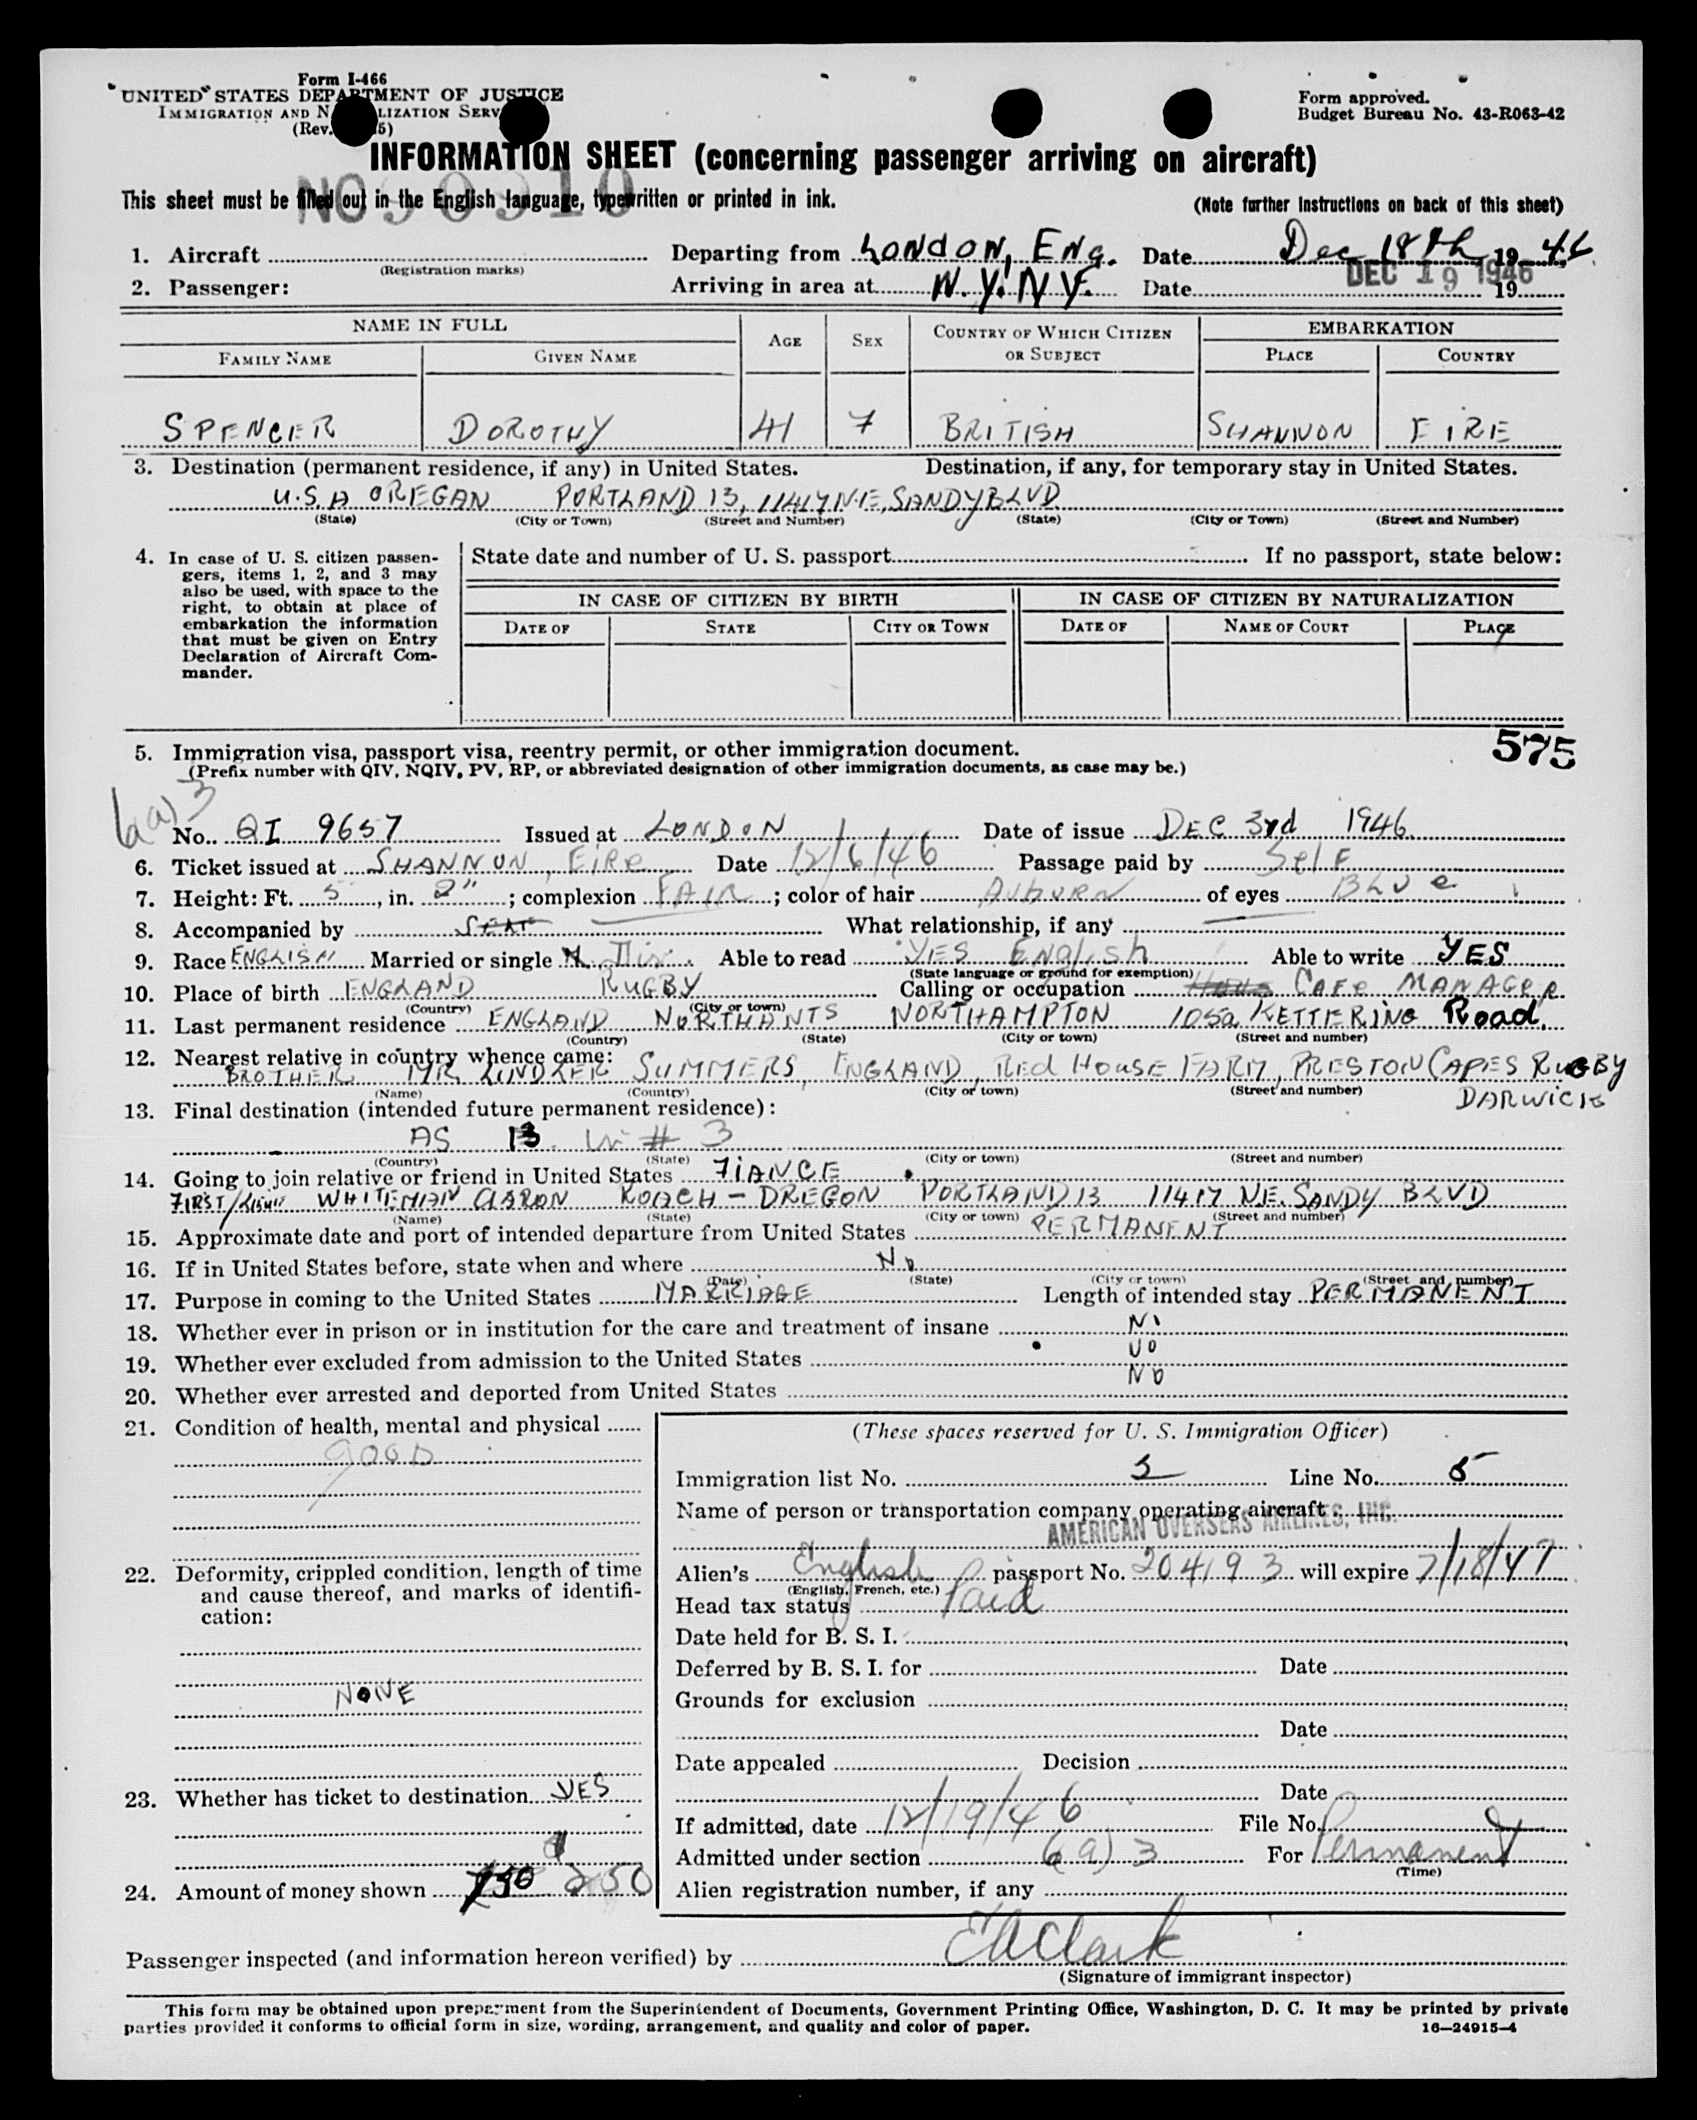 Form I-466
UNITED STATES DEPARTMENT OF JUSTICE
IMMIGRATION AND N LIZATION SERV
(Rev. 5)
Form approved.
Budget Bureau No. 43-R063-42
INFORMATION SHEET (concerning passenger arriving on aircraft)
This sheet must be filled out in the English language, typewritten or printed in ink.
(Note further instructions on back of this sheet)
1. Aircraft Departing from LONDON, ENG. Date Dec 18th, 1946
(Registration marks)
2. Passenger: Arriving in area at N.Y. N.Y. Date DEC 19 1946 19
NAME IN FULL AGE SEX COUNTRY OF WHICH CITIZEN OR SUBJECT EMBARKATION
FAMILY NAME GIVEN NAME PLACE COUNTRY
SPENCER DOROTHY 41 F BRITISH SHANNON EIRE
3. Destination (permanent residence, if any) in United States. Destination, if any, for temporary stay in United States.
U.S.A OREGAN PORTLAND 13, 11417 N.E, SANDY BLVD.
(State) (City or Town) (Street and Number) (State) (City or Town) (Street and Number)
4. In case of U. S. citizen passen-
gers, items 1, 2, and 3 may
also be used, with space to the
right, to obtain at place of
embarkation the information
that must be given on Entry
Declaration of Aircraft Com-
mander.
State date and number of U. S. passport If no passport, state below:
IN CASE OF CITIZEN BY BIRTH IN CASE OF CITIZEN BY NATURALIZATION
DATE OF STATE CITY OR TOWN DATE OF NAME OF COURT PLACE
575
5. Immigration visa, passport visa, reentry permit, or other immigration document.
(Prefix number with QIV, NQIV, PV, RP, or abbreviated designation of other immigration documents, as case may be.)
6(a)3
No. QI 9657 Issued at LONDON Date of issue DEC 3rd 1946
6. Ticket issued at SHANNON, EIRE Date 12/6/46 Passage paid by Self
7. Height: Ft. 5, in. 2"; complexion FAIR; color of hair AUBURN of eyes BLUE
8. Accompanied by What relationship, if any
9. Race ENGLISH Married or single Div. Able to read YES English Able to write YES
(State language or ground for exemption)
10. Place of birth ENGLAND RUGBY Calling or occupation CAFE MANAGER
(Country) (City or town)
11. Last permanent residence ENGLAND NORTHANTS NORTHAMPTON 105a KETTERING Road.
(Country) (State) (City or town) (Street and number)
12. Nearest relative in country whence came:
BROTHER MR LINDLER SUMMERS, ENGLAND, Red HOUSE FARM, PRESTON CAPES RUGBY
(Name) (Country) (City or town) (Street and number)
13. Final destination (intended future permanent residence):
AS in # 3
(Country) (State) (City or town) (Street and number)
14. Going to join relative or friend in United States FIANCE
WHITEMAN AARON ROACH - OREGON PORTLAND 13 11417 N.E. SANDY BLVD
(Name) (State) (City or town) (Street and number)
15. Approximate date and port of intended departure from United States PERMANENT
16. If in United States before, state when and where No
(Date) (State) (City or town) (Street and number)
17. Purpose in coming to the United States MARRIAGE Length of intended stay PERMANENT
18. Whether ever in prison or in institution for the care and treatment of insane No
19. Whether ever excluded from admission to the United States No
20. Whether ever arrested and deported from United States No
21. Condition of health, mental and physical
GOOD
22. Deformity, crippled condition, length of time
and cause thereof, and marks of identifi-
cation:
NONE
23. Whether has ticket to destination YES
24. Amount of money shown 250
(These spaces reserved for U. S. Immigration Officer)
Immigration list No. 2 Line No. 5
Name of person or transportation company operating aircraft
AMERICAN OVERSEAS AIRLINES, INC.
Alien's English passport No. 204193 will expire 7/18/47
(English, French, etc.)
Head tax status Paid
Date held for B. S. I.
Deferred by B. S. I. for Date
Grounds for exclusion
Date
Date appealed Decision
Date
If admitted, date 12/19/46 File No.
Admitted under section 6(a)3 For Permanent
(Time)
Alien registration number, if any
Passenger inspected (and information hereon verified) by EAClark
(Signature of immigrant inspector)
This form may be obtained upon prepayment from the Superintendent of Documents, Government Printing Office, Washington, D. C. It may be printed by private
parties provided it conforms to official form in size, wording, arrangement, and quality and color of paper.
16—24915-4